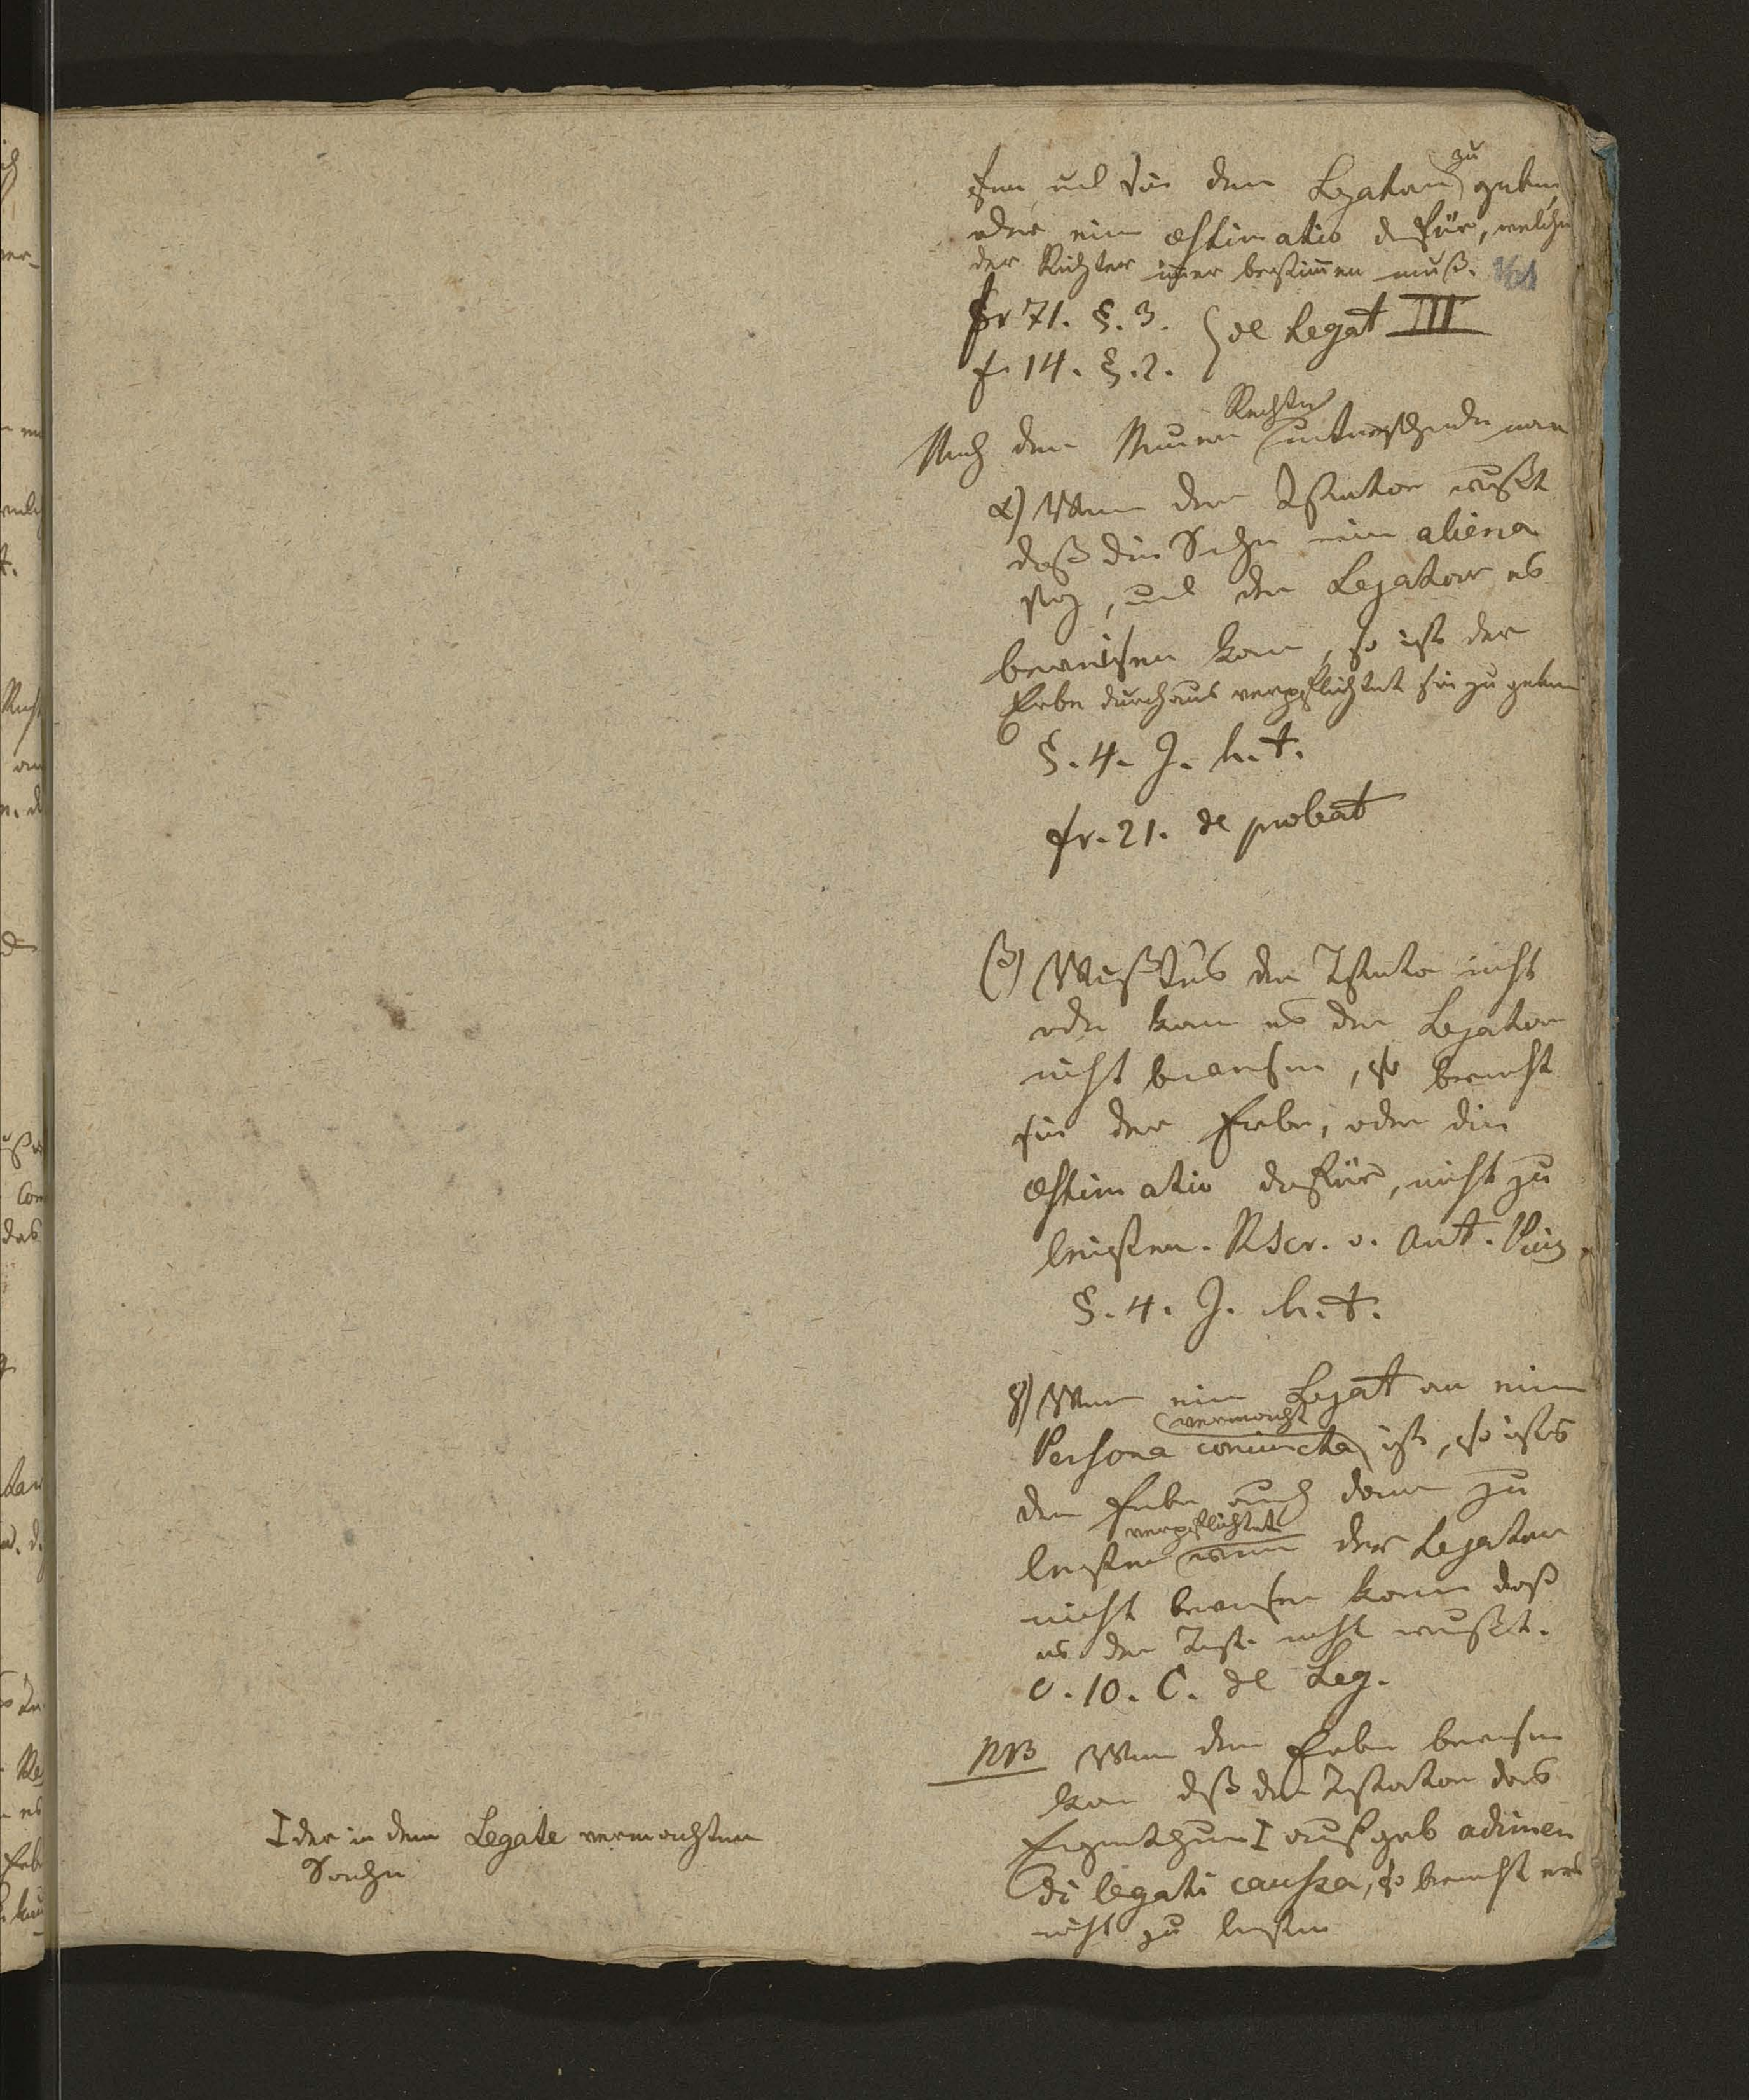 fen und sie dem Legatar zu geben,
oder eine æstimatio dafür, welche
der Richter immer bestimmen muß.
fr 71. §. 3.
f. 14. §. 2. } de Legat III
Nach dem Neuern Rechte unterscheide man
α) Wenn der Testator wußte
daß die Sache eine aliena
sey, und der Legatar es
beweisen kann, so ist der
Erbe durchaus verpflichtet sie zu geben
§. 4. J. h. t.
fr. 21. de probat
β) Wußte es der Testator nicht
oder kann es der Legatar
nicht beweisen, so braucht
sie der Erbe, oder die
æstimatio dafür, nicht zu
leisten. Rscr. v. Ant. Pius
§. 4. J. h. t.
γ) Wenn ein Legat an eine
Persona coniuncta vermacht ist, so ist es
der Erbe auch dann zu
leisten verpflichtet wenn der Legatar
nicht beweisen kann daß
es der Test. nicht wußte.
c. 10. C. de Leg.
NB Wenn der Erbe beweisen
kann daß der Testator das
Eigenthum I aufgab adimen
di legati caussa, so braucht ers
nicht zu leisten
I der in dem Legate vermachten
Sache